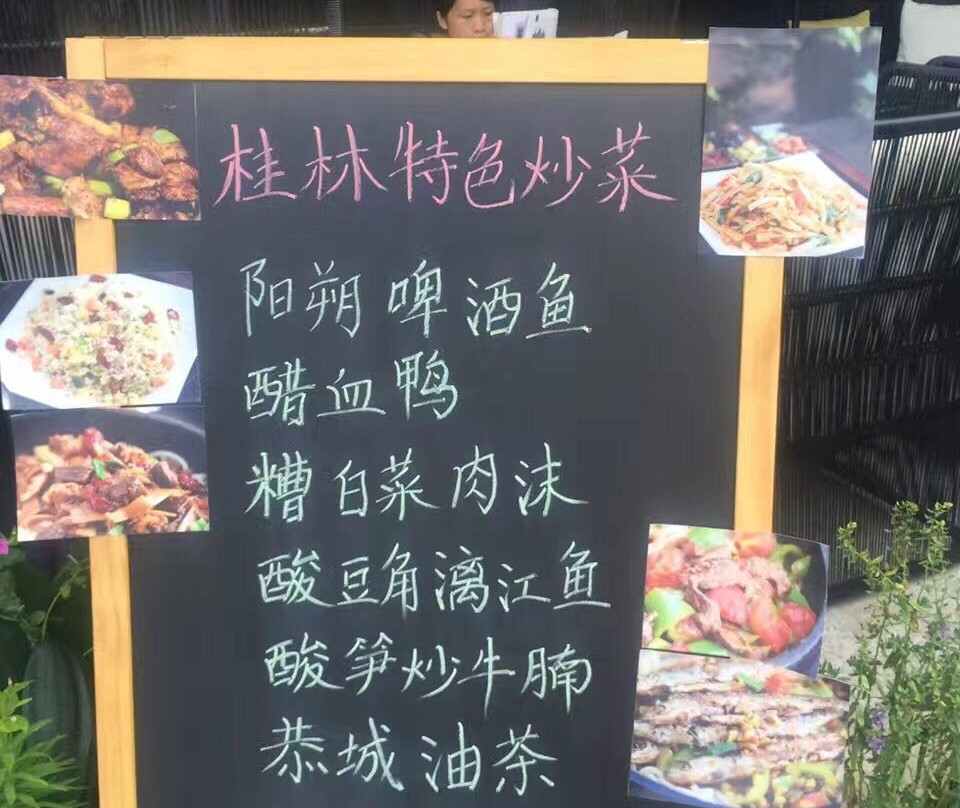 桂林特色炒菜
阳朔啤酒鱼
醋血鸭
糟白菜肉沫
酸豆角漓江鱼
酸笋炒牛腩
恭城油茶